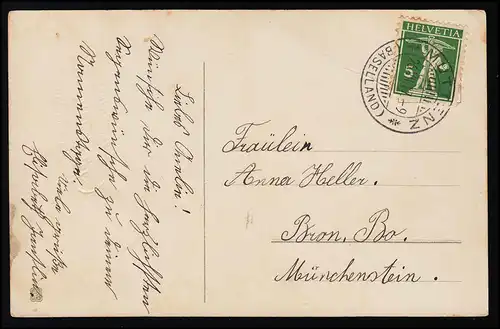 Liebes Annelin!
Wünsche dir die herzlichsten
Segenswünsche zu deinem
Namenstage.
Viele Grüße
HELVETIA
5
(BASELLAND)
Fräulein
Anna Heller.
Bron. Bo.
Münchenstein.